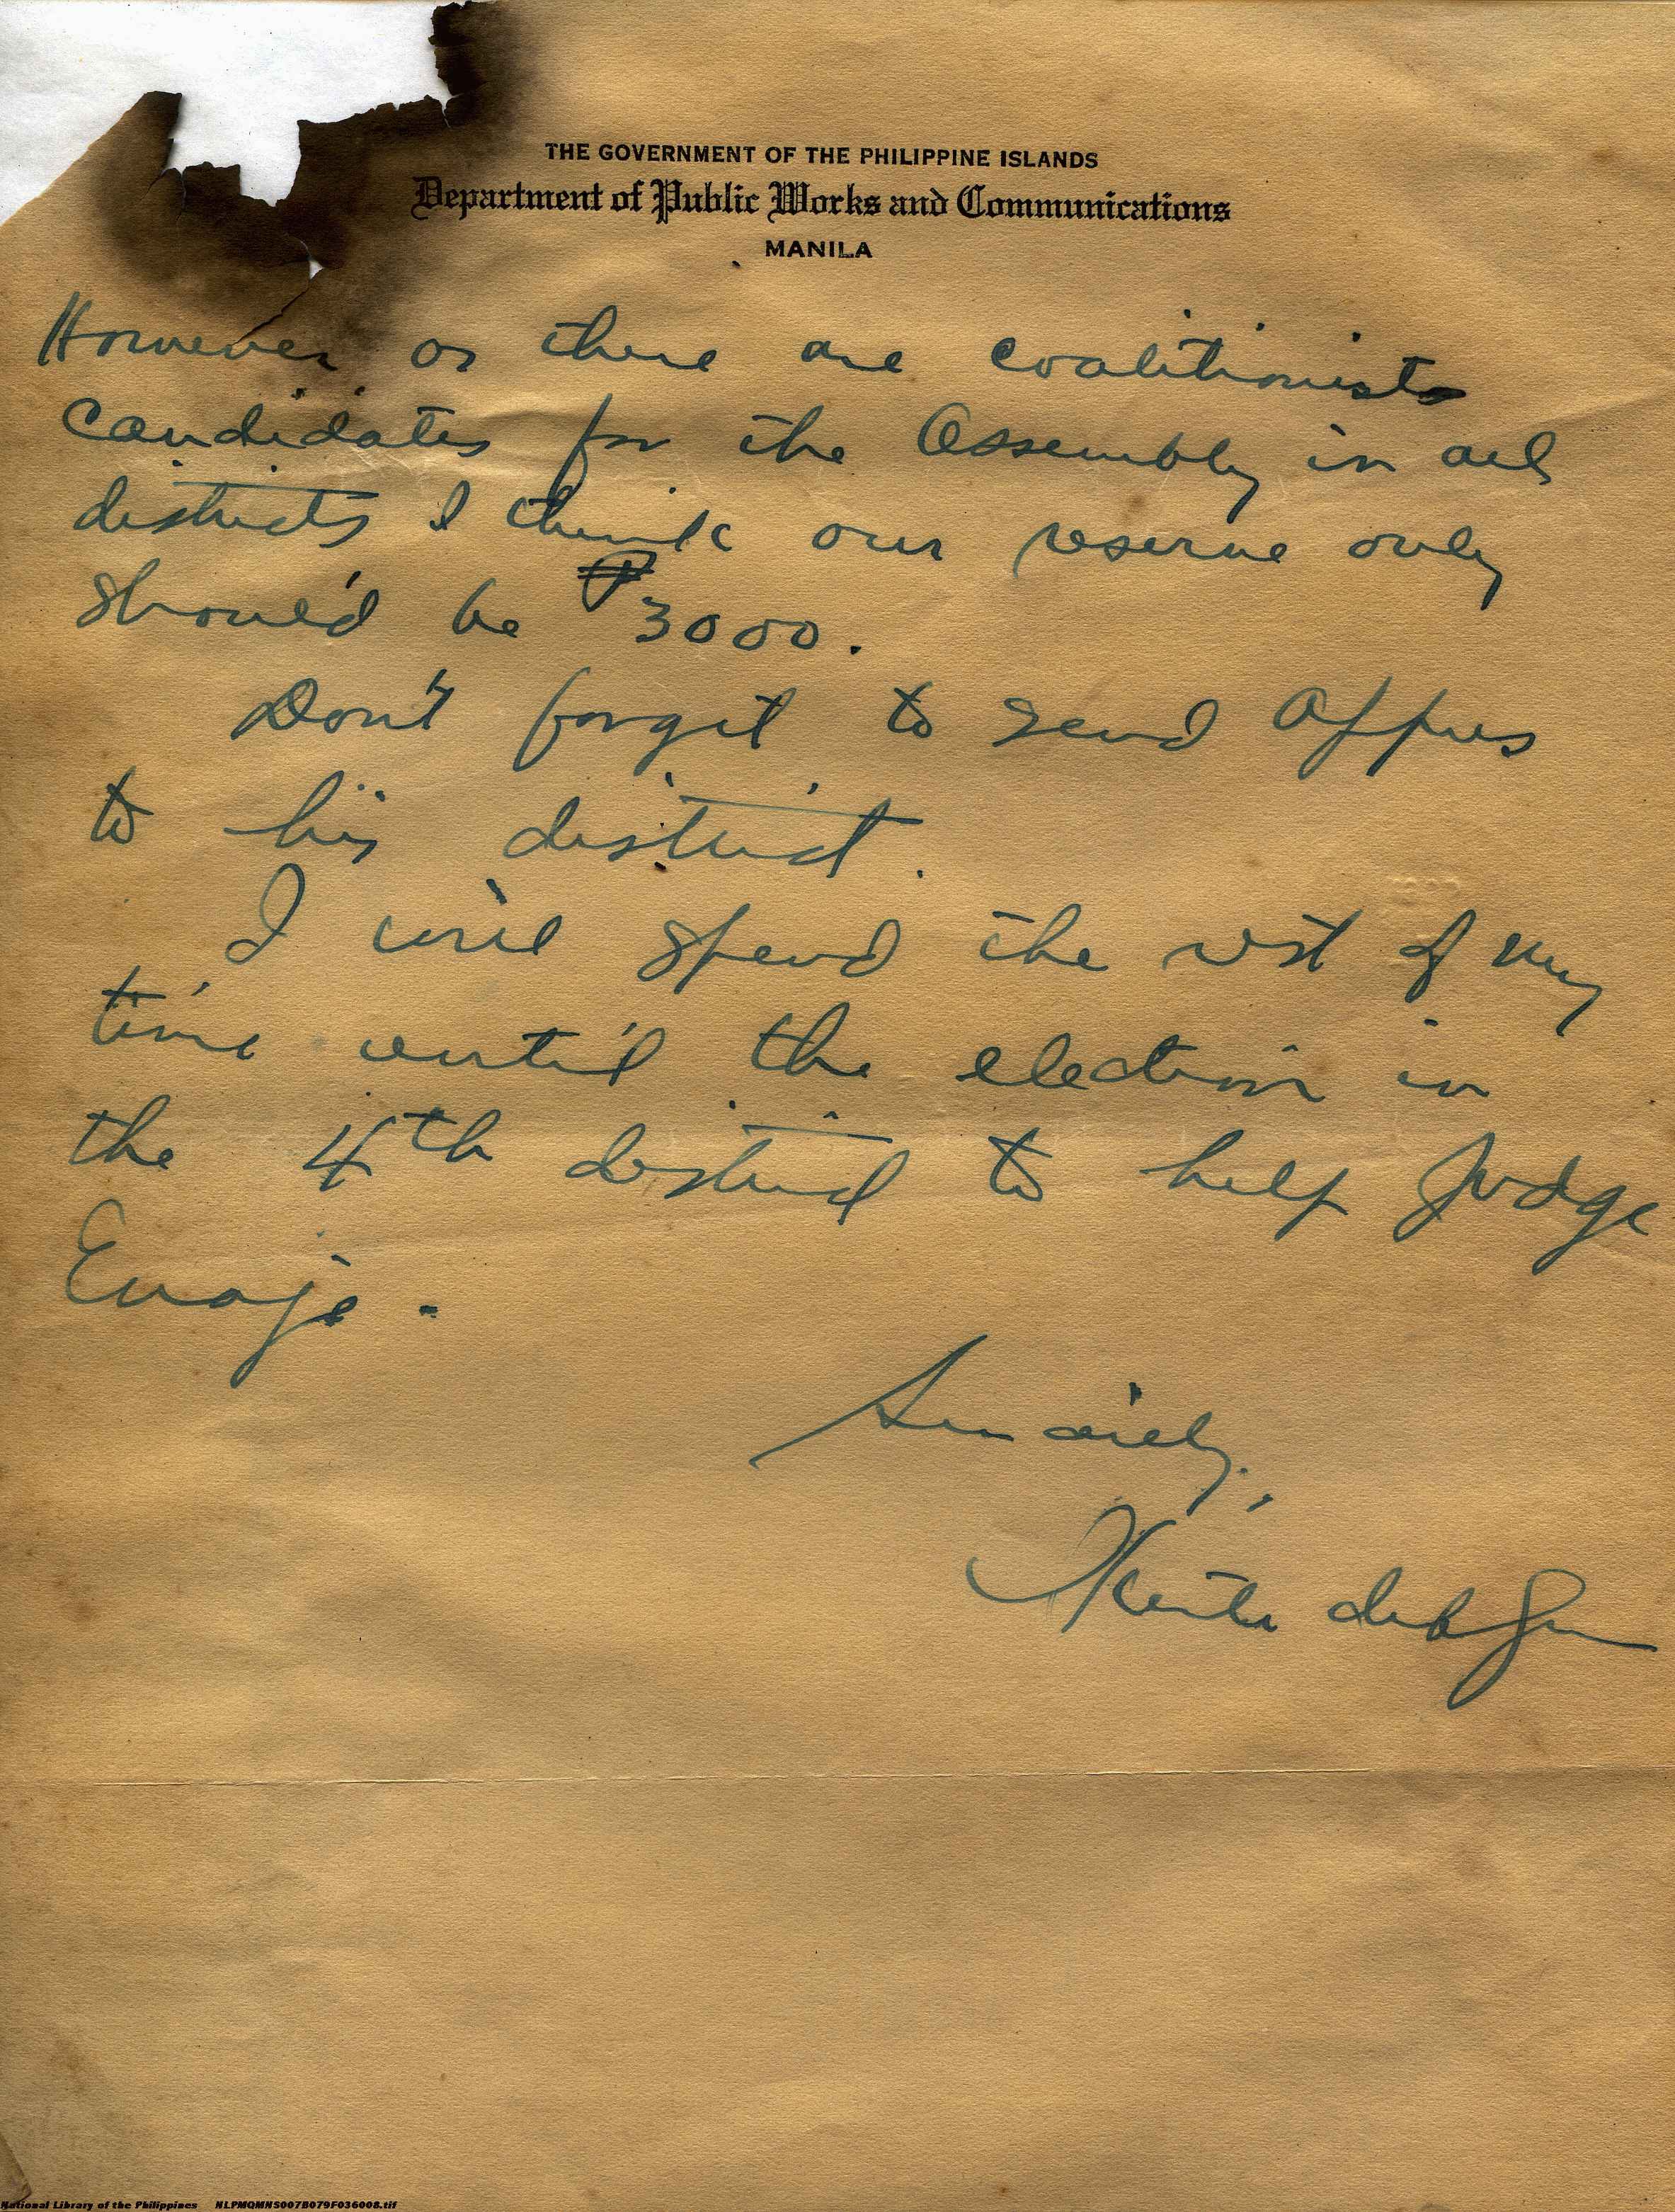 THE GOVERNMENT OF THE PHILIPPINE ISLANDS
Department of Public Works and Communications
MANILA
However as there are coalitionists
candidates for the Assembly in all
districts I think our reserve only
should be ₱3000.
Don't forget to send
to his district.
I will spend the rest of my
time until the election in
the 4th district to help Judge
Sincerely,
National Library of the Philippines NLPMQMNS007B079F036008.tif